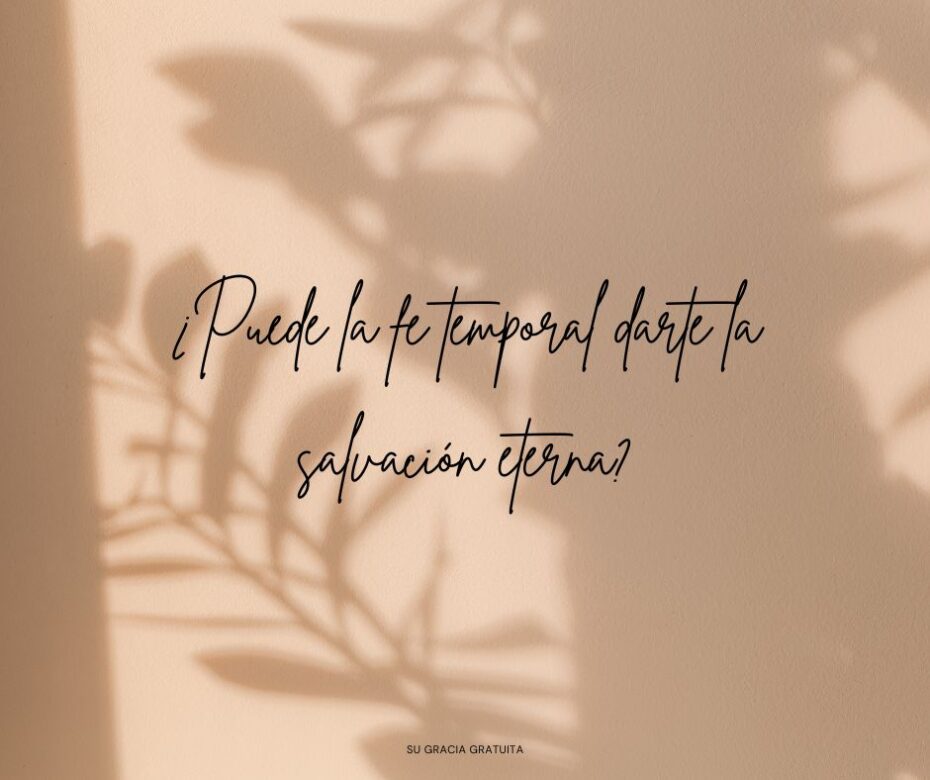 ¿Puede la fe temporal darte la
salvación eterna?
SU GRACIA GRATUITA